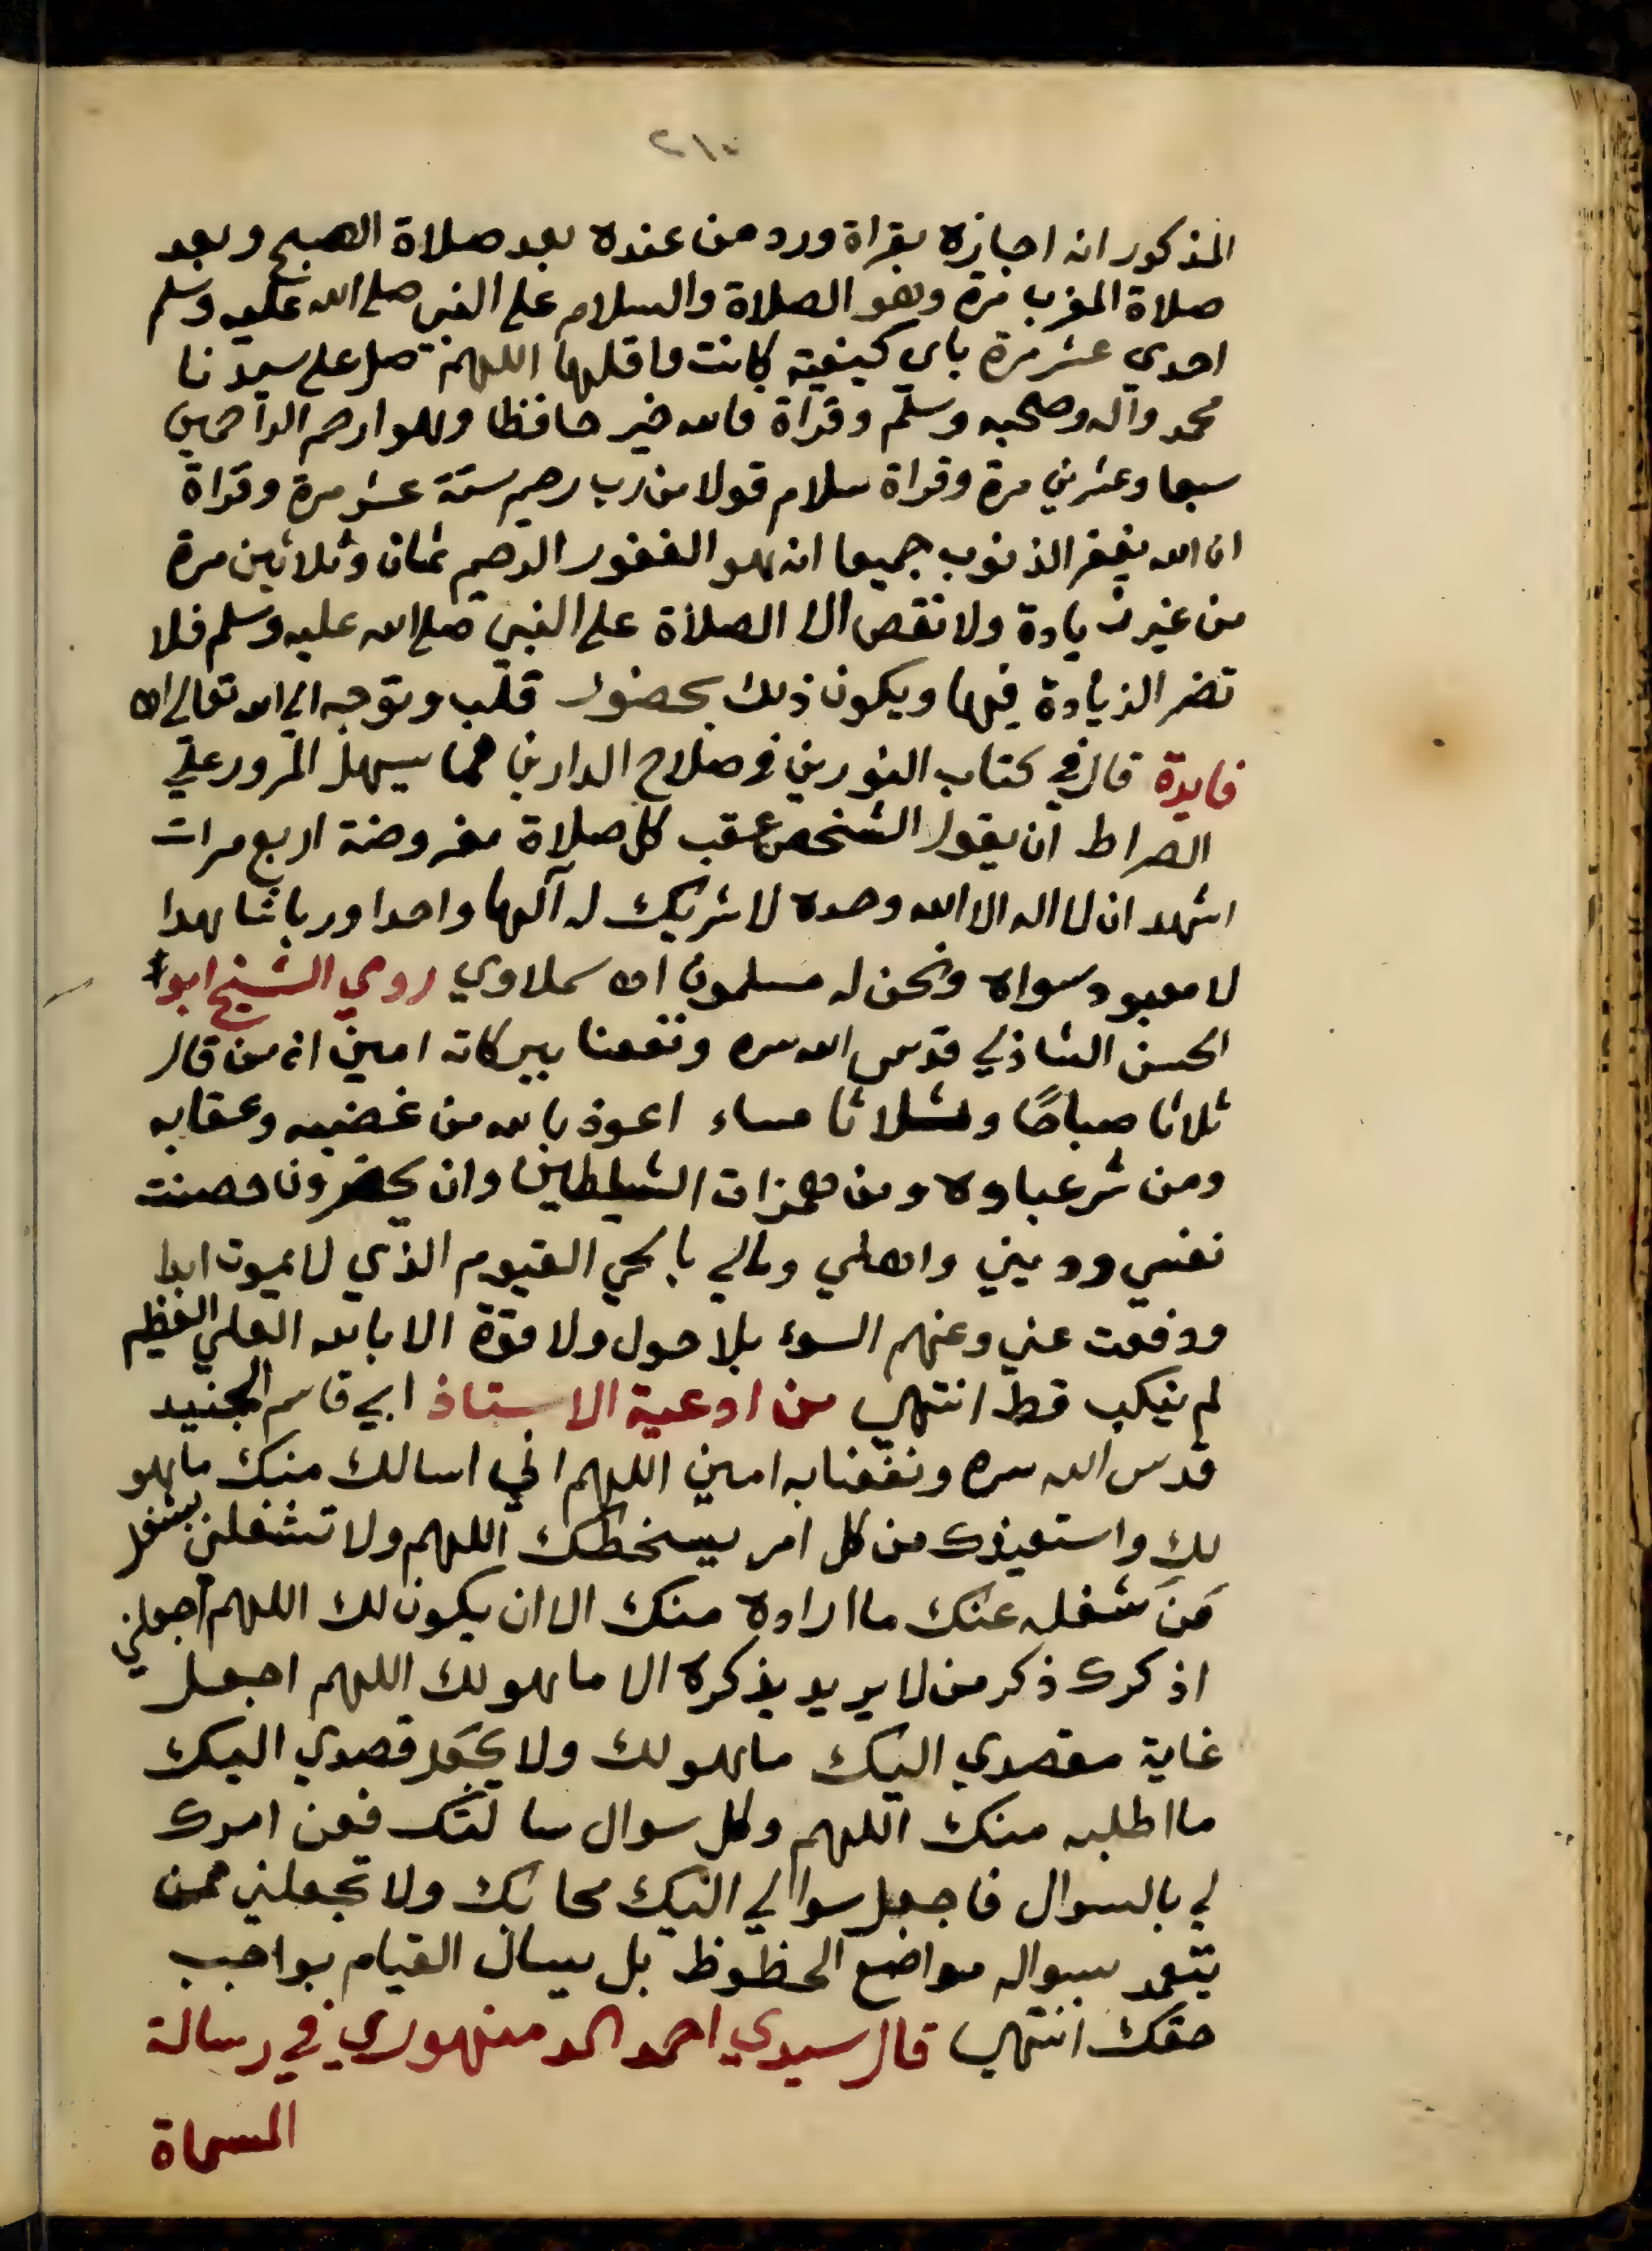 المذكور انه اجازه بقراة ورد من عنده بعد صلاة الصبح وبعد
صلاة المغرب مرة وهو الصلاة والسلام على النبي صلى الله عليه وسلم
احدي عشر مرة باي كيفية كانت واقلها اللهم صل على سيدنا
محمد وآله وصحبه وسلم وقراة فالله خير حافظا وهو ارحم الراحمين
سبعا وعشرين مرة وقراة سلام قولا من رب رحيم ستة عشر مرة وقراة
ان الله يغفر الذنوب جميعا انه هو الغفور الرحيم ثمان وثلاثين مرة
من غير زيادة ولا نقص الا الصلاة على النبي صلى الله عليه وسلم فلا
تضر الزيادة فيها ويكون ذلك بحضور قلب وتوجه الى الله تعالى اه
فايدة قال في كتاب النورين في صلاح الدارين مما يسهل المرور علي
الصراط ان يقول الشخص عقب كل صلاة مفروضة اربع مرات
اشهد ان لا اله الا الله وحده لا شريك له آلها واحدا وربا شاهدا
لا معبود سواه ونحن له مسلمون اه سملاوي روي الشيخ ابو
الحسن الشاذلي قدس الله سره ونفعنا ببركاته امين انه من قال
ثلاثا صباحًا وثلاثا مساء اعوذ بالله من غضبه وعقابه
ومن شر عباده ومن همزات الشيطين وان يحضرون حصنت
نفسي وديني واهلي ومالي بالحي القيوم الذي لا يموت ابدا
ودفعت عني وعنهم السوء بلا حول ولا قوة الا بالله العلي العظيم
لم ينكب قط انتهى من ادعية الاستاذ ابي قاسم الجنيد
قدس الله سره ونفعنا به امين اللهم اني اسالك منك ما هو
لك واستعيذك من كل امر يسخطك اللهم ولا تشغلني بشغل
مَن شغله عنك ما اراده منك الا ان يكون لك اللهم اجعلني
اذكرك ذكر من لا يريد بذكره الا ما هو لك اللهم اجعل
غاية مقصدي اليك ما هو لك ولا تجعل قصدي اليك
ما اطلبه منك اللهم وكل سوال سالتك فعن امرك
لي بالسوال فاجعل سوالي اليك محابك ولا تجعلني ممن
يتعمد بسواله مواضع الحظوظ بل يسال القيام بواجب
حقك انتهى قال سيدي احمد الدمنهوري في رسالة
المسماة